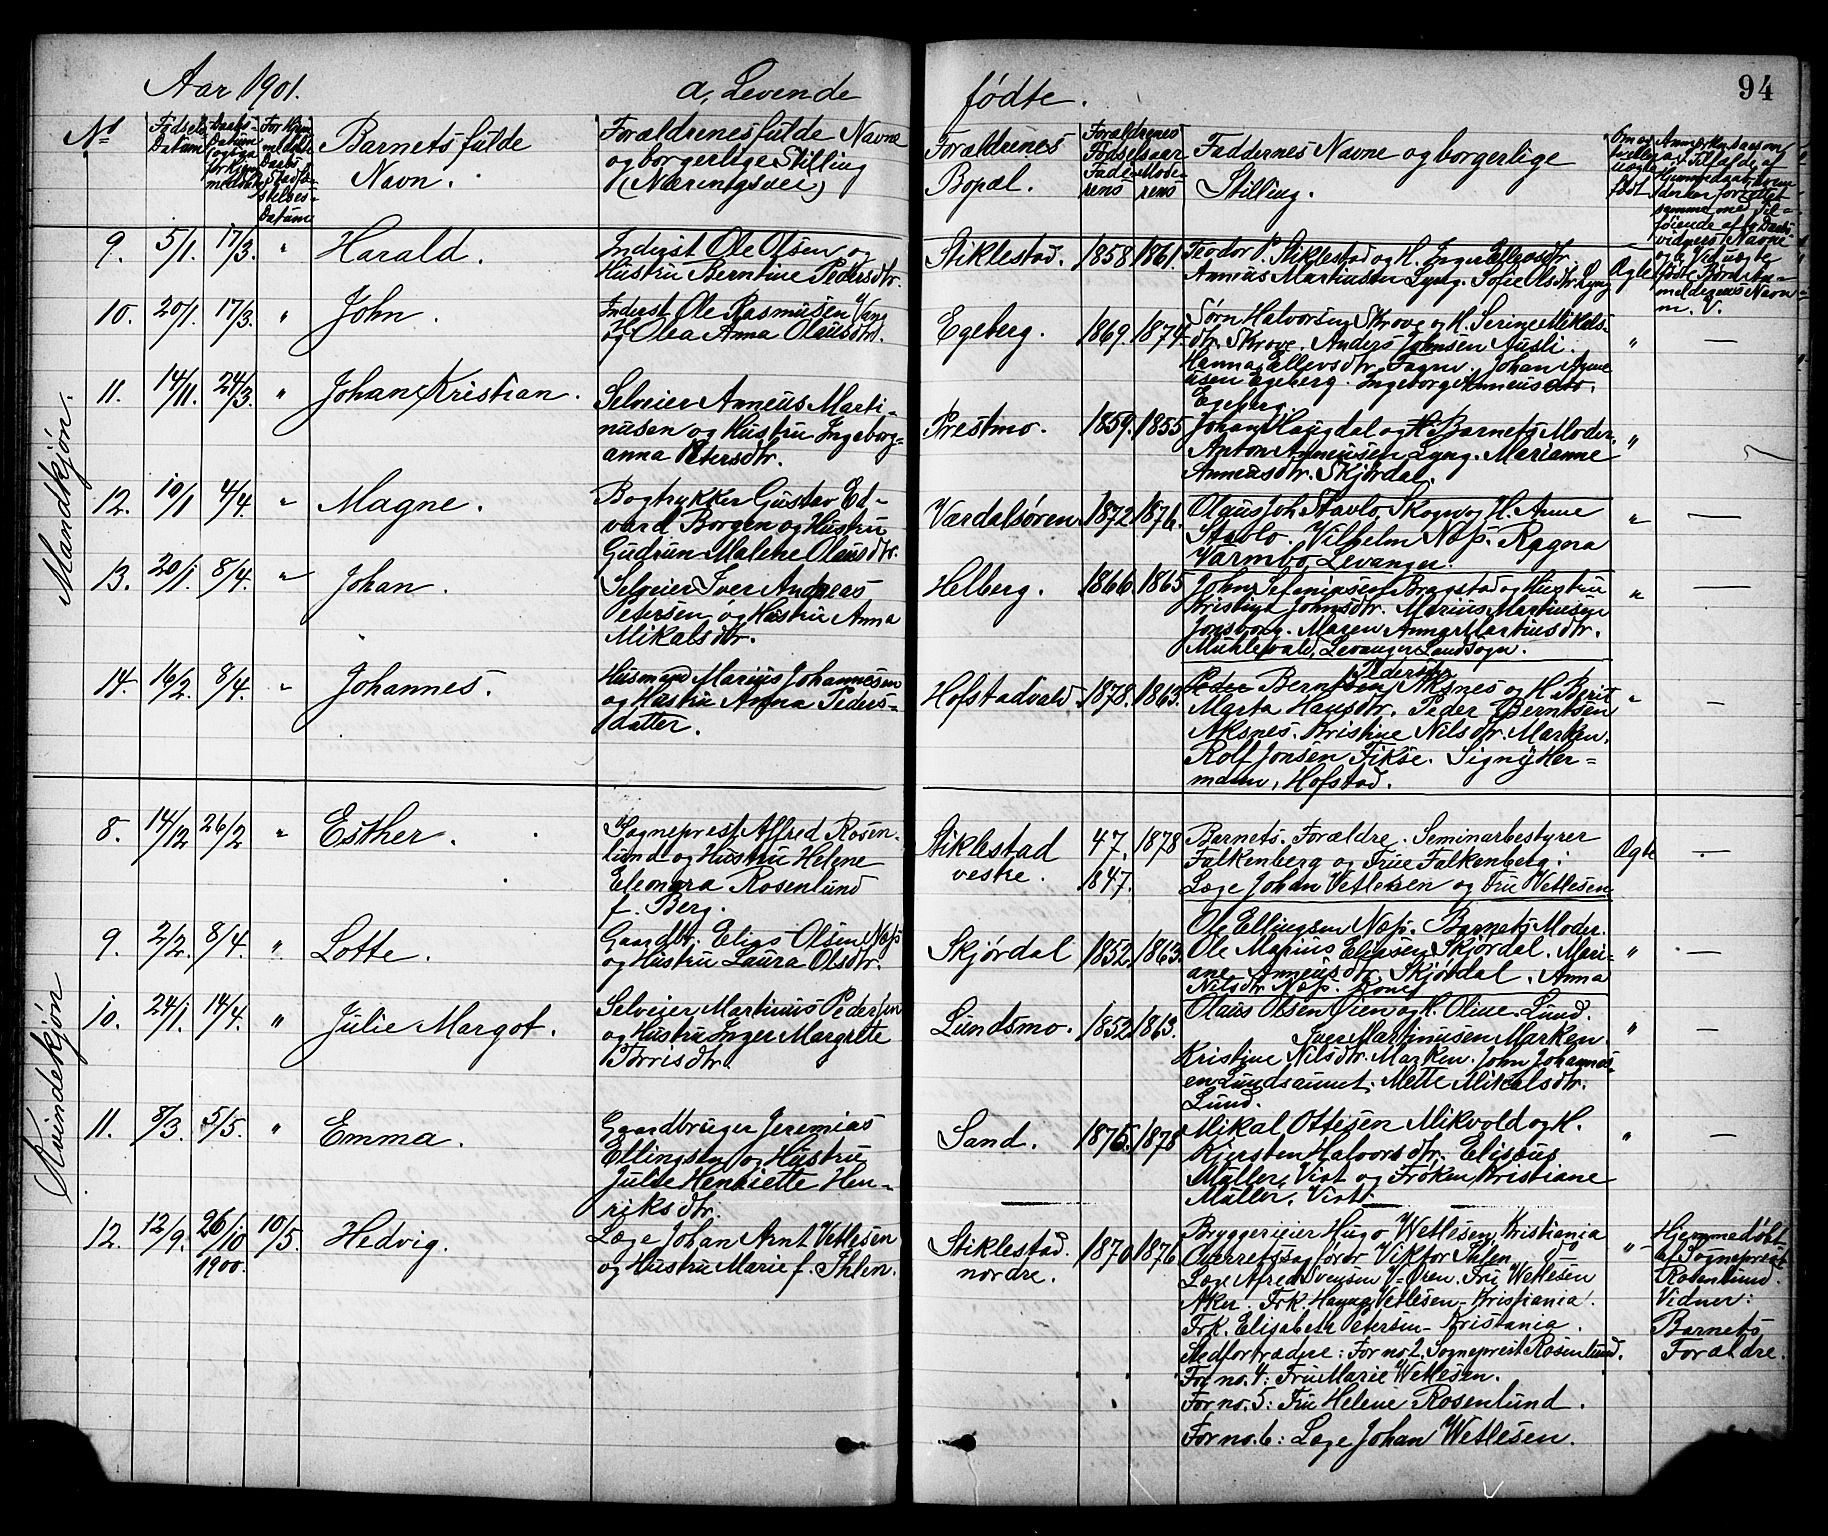 Aar 1901. a, Levende fødte. 94
No
Fødsels
Datum
Barnets fulde
Navn.
Forældrenes fulde Navne
og borgerlige Stilling
(Næringsvei)
Forældrenes
Bopæl.
Forældrenes
Fødselsaar
Faddernes Navne og borgerlige
Stilling.
Mandkjøn.
9. 5/1. 17/3. " Harald.
Inderst Ole Olsen og
Hustru Berntine Pedersdtr.
Stiklestad. 1858. 1861.
Teodor P. Stiklestad og H. Inger Ellevsdtr.
Anneus Martinsen Lyng. Sofie Olsdtr. Lyng
Ægte
10. 20/1. 17/3. " John.
Inderst Ole Rasmusen Vang
og Olea Anna Olausdtr.
Egeberg. 1869. 1874.
Sørn Halvorsen Skrove og H. Serine Mikals-
dtr. Skrove. Anders Johnsen Ausli.
Hanna Ellevsdtr. Johan
Egeberg. Ingeborg Anneusdtr.
Egeberg.
" —
11. 14/11. 24/3. " Johan Kristian.
Selveier Anneus Marti-
nusen og Hustru Ingeborg-
anna Petersdtr.
Prestmo. 1859. 1855
Johan Haugdal og H. Barnets Moder.
Anton Anneusen Lyng. Marianne
Anneusdtr. Skjørdal.
"
12. 10/1 4/4. " Magne.
Bogtrykker Gustav Ed-
vard Borgen og Hustru
Gudrun Malene Olausdtr.
Værdalsøren 1872. 1876.
Olaus Joh Stavlo Skogn og H. Anne
Stavlo. Vilhelm Næss. Ragna
Varmbo Levanger.
" —
13. 20/1. 8/4. " Johan.
Selveier Iver Andreas
Petersen og Hustru Anna
Mikalsdtr.
Helberg. 1866. 1865
John Bragstad og Hustru
Kristine Johnsdtr. Marius Martinsen
Jonsborg. Maren Anna Martinsdtr.
Levanger Landsogn.
" —
14. 16/2. 8/4. " Johannes.
Husmand Marius Johannesen
og Hustru Anna Peders-
datter.
Hofstadvald. 1878. 1863.
Pedersen
Peder Berntsen Aksnes og H. Berit
Marta Hansdtr. Peder Berntsen
Aksnes. Kristine Nilsdtr. Marken.
Rolf Jonsen Fikse. Signy Her-
mann, Hofstad.
" —
Kvindekjøn
8. 14/12 26/2 " Esther.
Sogneprest Alfred Rosen-
lund og Hustru Helene
Eleonora Rosenlund
f. Berg.
Stiklestad
vestre.
47. 1878
1847.
Barnets Forældre. Seminarbestyrer
Falkenberg og Frue Falkenberg.
Læge Johan Vetlesen og Fru Vetlesen.
Ægte —
9. 2/2. 8/4. " Lotte.
Gaardbr. Elias Olsen Næss
og Hustru Laura Olsdtr.
Skjørdal 1852. 1863.
Ole Ellingsen Næss. Barnets Moder.
Ole Marius Eliasen Skjørdal. Mari-
ane Anneusdtr. Skjørdal. Anna
Nilsdtr. Næss. Kone
" —
10. 24/1. 14/4. " Julie Margot.
Selveier Martinus Pedersen
og Hustru Inger Margrete
Torrisdtr.
Lundsmo. 1852. 1863.
Olaus Olsen Øien og H. Oline Lund.
Iver Martinusen Marken.
Kristine Nilsdtr. Marken. John Johannes-
en Lundsaunet. Mette Mikalsdtr.
Lund.
" —
11. 8/3. 5/5. " Emma.
Gaardbruger Jeremias
Ellingsen og Hustru
Julie Henriette Hen-
riksdtr.
Sand. 1875. 1878
Mikal Ottesen Mikvold og H.
Kjersten Halvorsdtr. Eliseus
Müller, Vist og Frøken Kristiane
Müller, Vist.
" —
12. 12/9. 26/10 1900. 10/5. Hedvig.
Læge Johan Arnt Vetlesen
og Hustru Marie f. Ihlen.
Stiklestad
nordre.
1870 1876
Bryggerieier Hugo Wetlesen, Kristiania
Overretssagfører Viktor Ihlen do
Læge Alfred Svensen V-Øren. Fru Wetlesen
Aker. Frk. Hanna Vetlesen-Kristiania.
Frk. Elisabeth Petersen-Kristania.
Stedfortrædere: For no. 2. Sogneprest Rosenlund.
For no. 4: Fru Marie Wetlesen.
For no. 5: Fru Helene Rosenlund.
For no. 6: Læge Johan Wetlesen.
"
Hjemmedøbt
af Sogneprest
Rosenlund.
Vidner:
Barnets
Forældre.